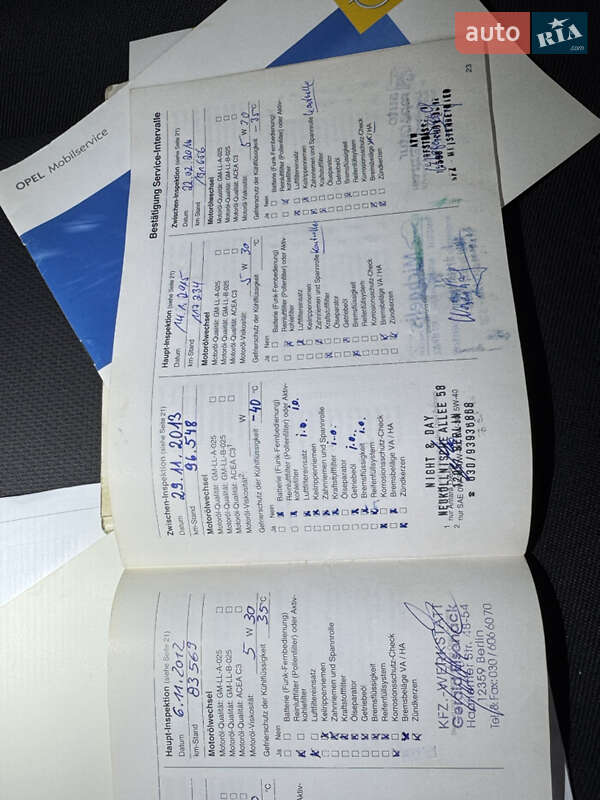 auto RIA.com
OPEL Mobilservice
Bestätigung Service-Intervalle
Haupt-Inspektion (siehe Seite 21)
Datum 6.11.2012
km-Stand 83569
Motorölwechsel
Motoröl-Qualität: GM-LL-A-025
Motoröl-Qualität: GM-LL-B-025
Motoröl-Qualität: ACEA C3
Motoröl-Viskosität: 5 W 30
Gefrierschutz der Kühlflüssigkeit 35 °C
Ja Nein
Batterie (Funk-Fernbedienung)
Reinluftfilter (Pollenfilter) oder Aktiv-
kohlefilter
Luftfiltereinsatz
Keilrippenriemen
Zahnriemen und Spannrolle
Kraftstoffilter
Ölseparator
Getriebeöl
Bremsflüssigkeit
Reifenfüllsystem
Korrosionsschutz-Check
Bremsbeläge VA / HA
Zündkerzen
KFZ-WERKSTATT
12359 Berlin
Zwischen-Inspektion (siehe Seite 21)
Datum 29.11.2013
km-Stand 96.548
Motorölwechsel
Motoröl-Qualität: GM-LL-A-025
Motoröl-Qualität: GM-LL-B-025
Motoröl-Qualität: ACEA C3
Motoröl-Viskosität: W
Gefrierschutz der Kühlflüssigkeit -40 °C
Ja Nein
Batterie (Funk-Fernbedienung)
Reinluftfilter (Pollenfilter) oder Aktiv-
kohlefilter i.o.
Luftfiltereinsatz i.o.
Keilrippenriemen
Zahnriemen und Spannrolle
Kraftstoffilter i.o.
Ölseparator
Getriebeöl i.o.
Bremsflüssigkeit i.o.
Reifenfüllsystem
Korrosionsschutz-Check
Bremsbeläge VA / HA
Zündkerzen
NIGHT & DAY
NEUKÖLLNISCHE ALLEE 58
BERLIN
☎ 030/93936868
Haupt-Inspektion (siehe Seite 21)
Datum
km-Stand
Motorölwechsel
Motoröl-Qualität: GM-LL-A-025
Motoröl-Qualität: GM-LL-B-025
Motoröl-Qualität: ACEA C3
Motoröl-Viskosität: 5 W 30
Gefrierschutz der Kühlflüssigkeit °C
Ja Nein
Batterie (Funk-Fernbedienung)
Reinluftfilter (Pollenfilter) oder Aktiv-
kohlefilter
Luftfiltereinsatz
Keilrippenriemen
Zahnriemen und Spannrolle Kontrolle
Kraftstoffilter
Ölseparator
Getriebeöl
Bremsflüssigkeit
Reifenfüllsystem
Korrosionsschutz-Check
Bremsbeläge VA / HA
Zündkerzen
Zwischen-Inspektion (siehe Seite 21)
Datum
km-Stand
Motorölwechsel
Motoröl-Qualität: GM-LL-A-025
Motoröl-Qualität: GM-LL-B-025
Motoröl-Qualität: ACEA C3
Motoröl-Viskosität: 5 W
Gefrierschutz der Kühlflüssigkeit -35 °C
Ja Nein
Batterie (Funk-Fernbedienung)
Reinluftfilter (Pollenfilter) oder Aktiv-
kohlefilter
Luftfiltereinsatz
Keilrippenriemen
Zahnriemen und Spannrolle Kontrolle
Kraftstoffilter
Ölseparator
Getriebeöl
Bremsflüssigkeit
Reifenfüllsystem
Korrosionsschutz-Check
Bremsbeläge VA / HA
Zündkerzen
23